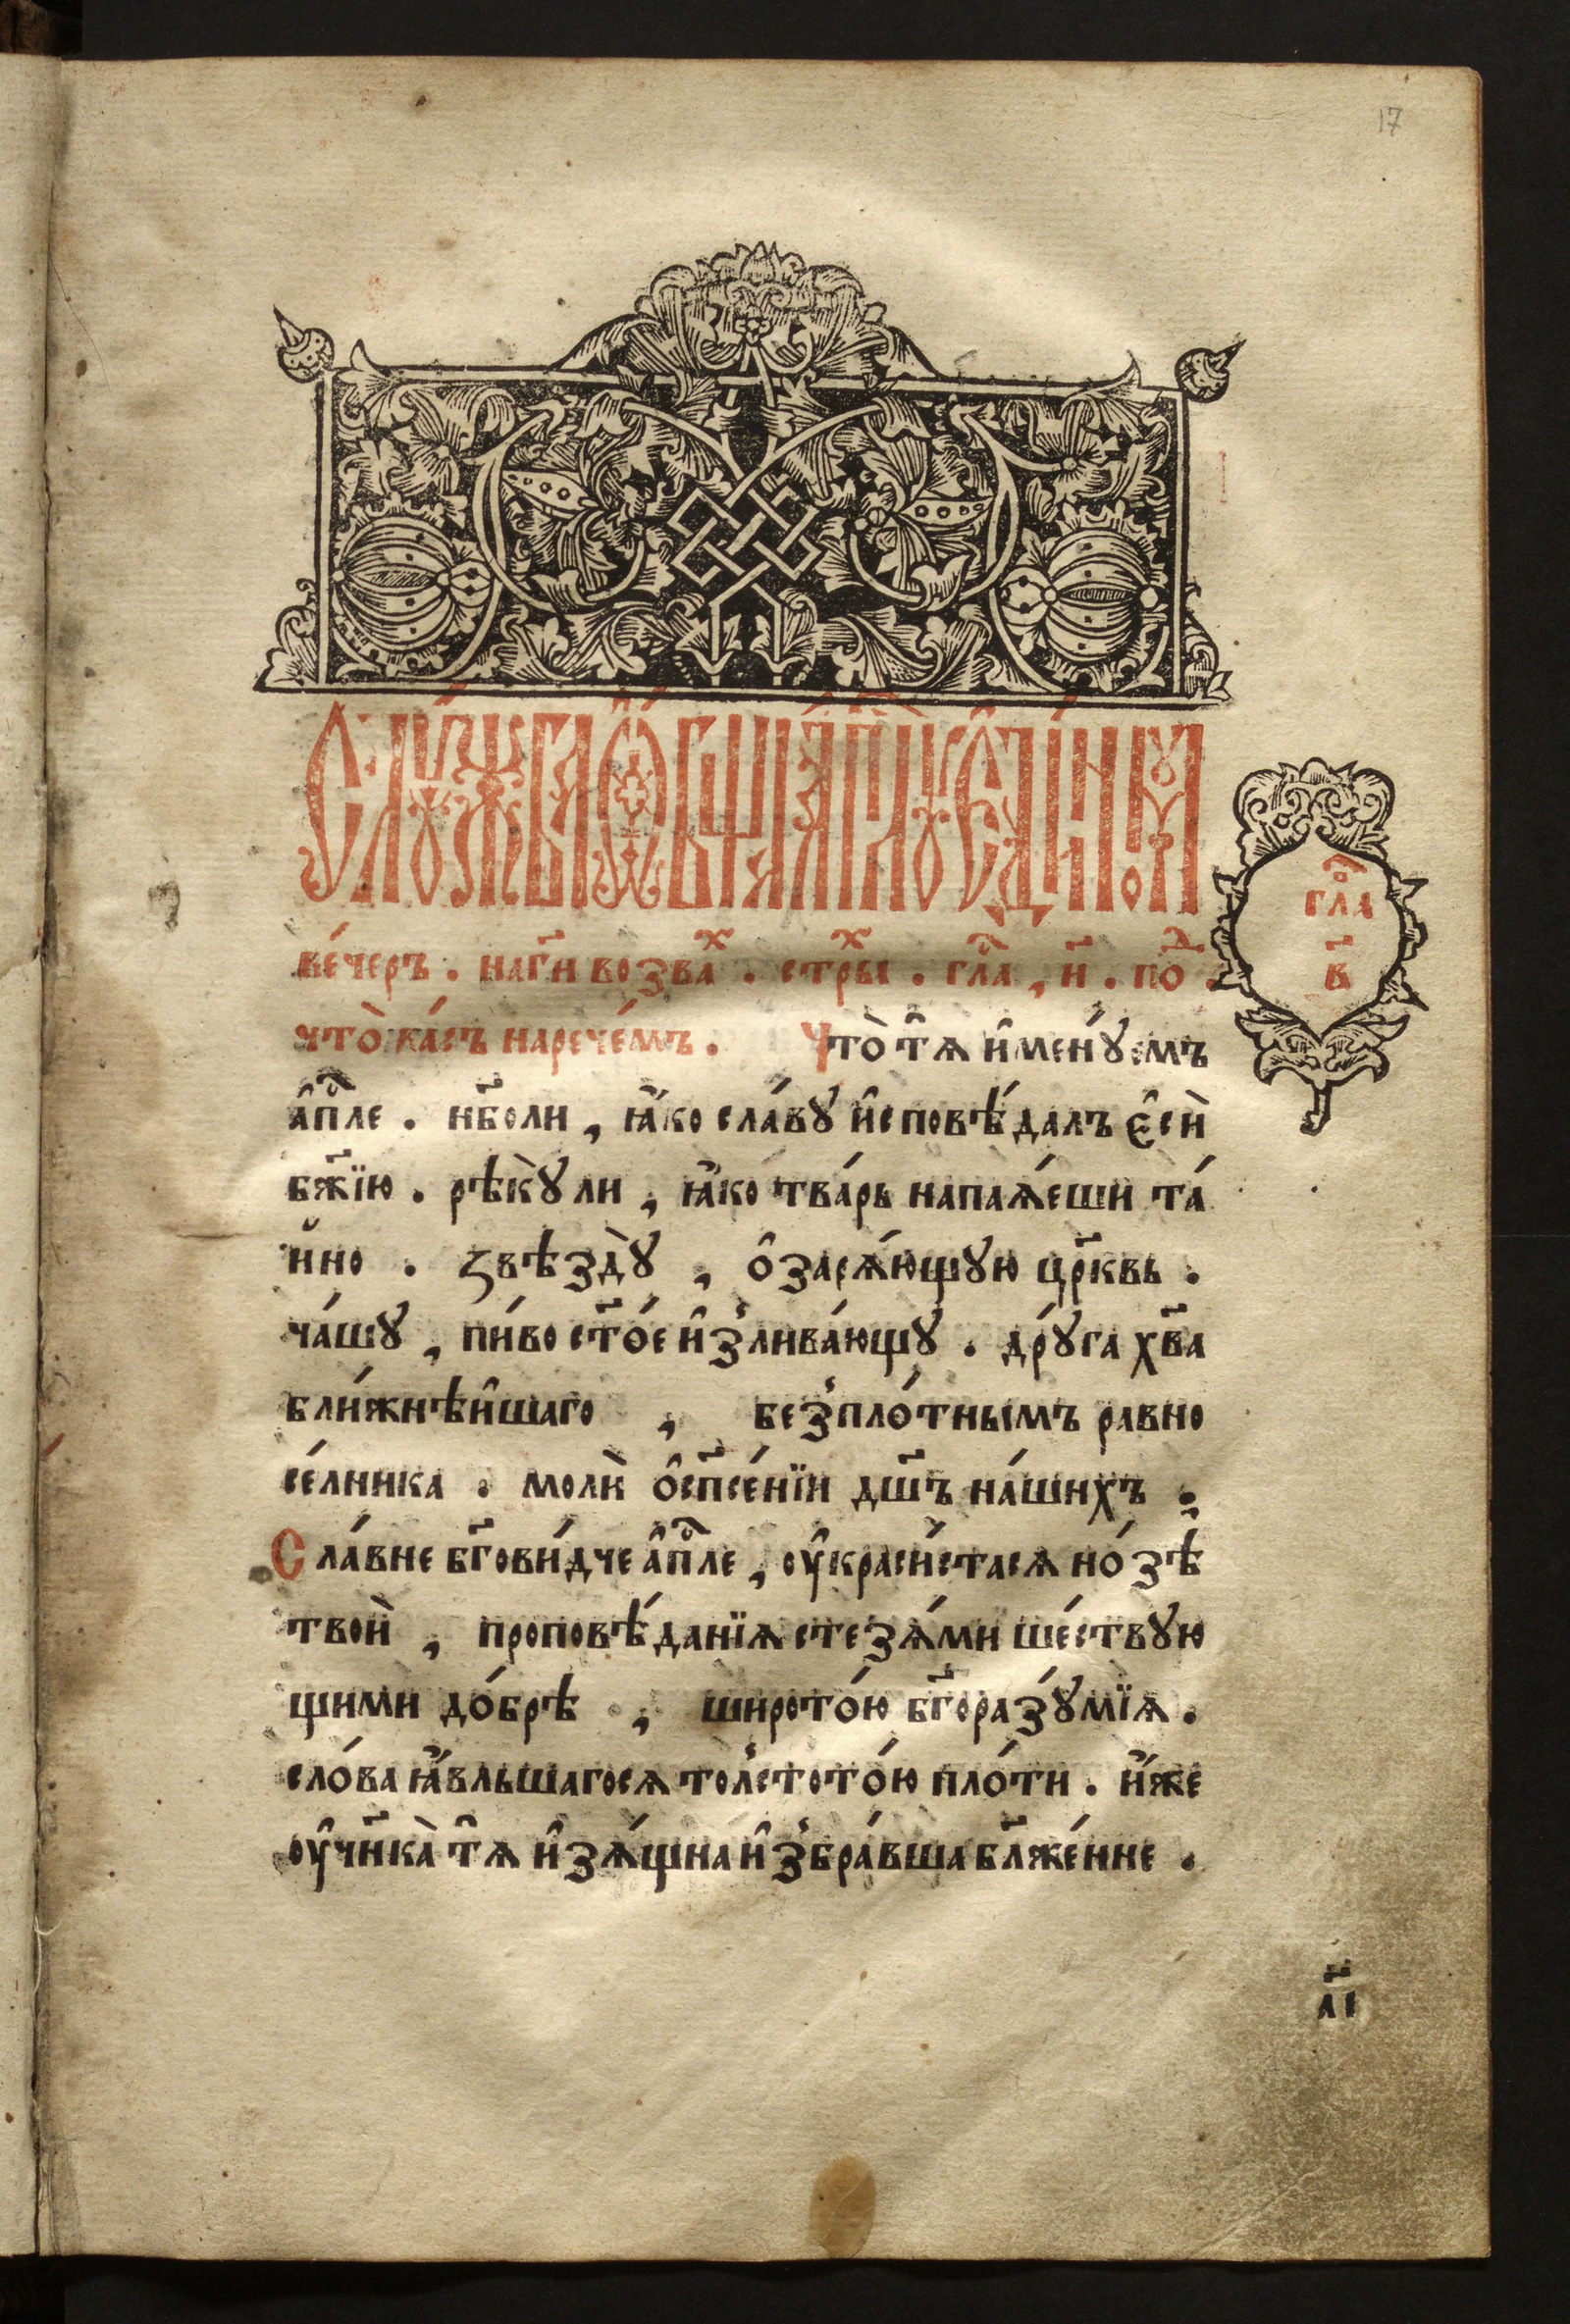 17
Слꙋ́жбы ѡ҆́бщїѧ а҆пⷭ҇лꙋ є҆ди́номꙋ
гл҃аⷡ
в҃
ве́черъ . на гⷭ҇и возваⷯ . стⷯры . глⷭ҇а , и҃ . поⷣ .
что̀ ва́съ нарече́мъ . Что̀ тѧ̑ и҆менꙋ́емъ
а҆пⷭ҇ле . нб҃о ли , ꙗ҆́кѡ сла́вꙋ и҆сповѣ́далъ є҆сѝ
бж҃їю . рѣкꙋ̀ ли , ꙗ҆́ко тва́рь напаѧ́еши та́
йно . ѕвѣздꙋ̀ , ѻ҆зарѧ́ющꙋю цр҃квь .
ча́шꙋ , пи́во ст҃о́е и҆з̾лива́ющꙋ . дрꙋ́га хв҃а
бли́жнѣйшаго , без̾пло́тнымъ равно
се́лника . молѝ ѻ҆ сп҃се́нїи дш҃ъ на́шихъ .
Сла́вне бг҃ови́дче а҆пⷭ҇ле , оу҆краси́стасѧ но́зѣ
твоѝ , проповѣ́данїѧ стезѧ́ми ше́ствꙋю
щими до́брѣ , широто́ю бг҃оразꙋ́мїѧ .
сло́ва ꙗ҆́вльшагосѧ толстото́ю пло́ти . и҆́же
оу҆чн҃ка̀ тѧ̑ и҆зѧ́щна и҆з̾бра́вша бл҃же́нне .
а҃і